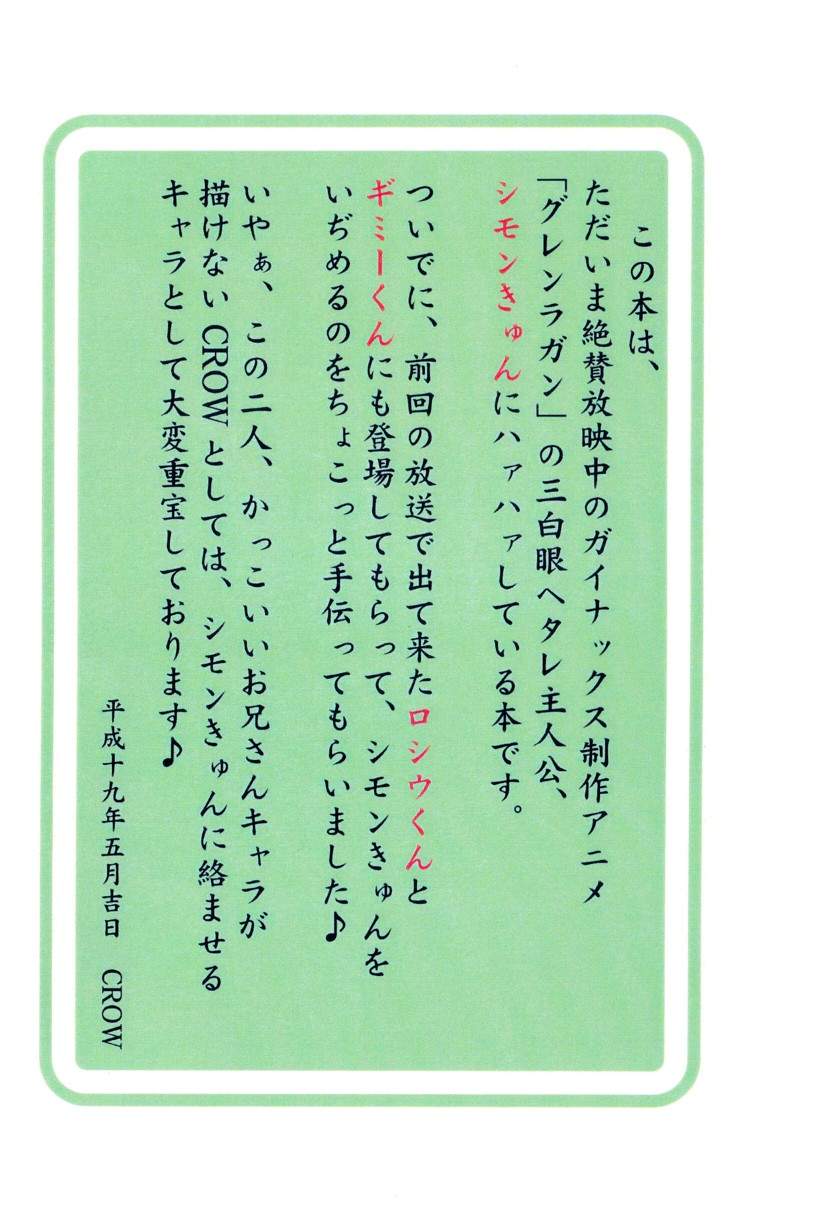 この本は、
ただいま絶賛放映中のガイナックス制作アニメ
「グレンラガン」の三白眼ヘタレ主人公、
シモンきゅんにハァハァしている本です。
ついでに、前回の放送で出て来たロシウくんと
ギミーくんにも登場してもらって、シモンきゅんを
いぢめるのをちょこっと手伝ってもらいました♪
いやぁ、この二人、かっこいいお兄さんキャラが
描けないCROWとしては、シモンきゅんに絡ませる
キャラとして大変重宝しております♪
平成十九年五月吉日 CROW